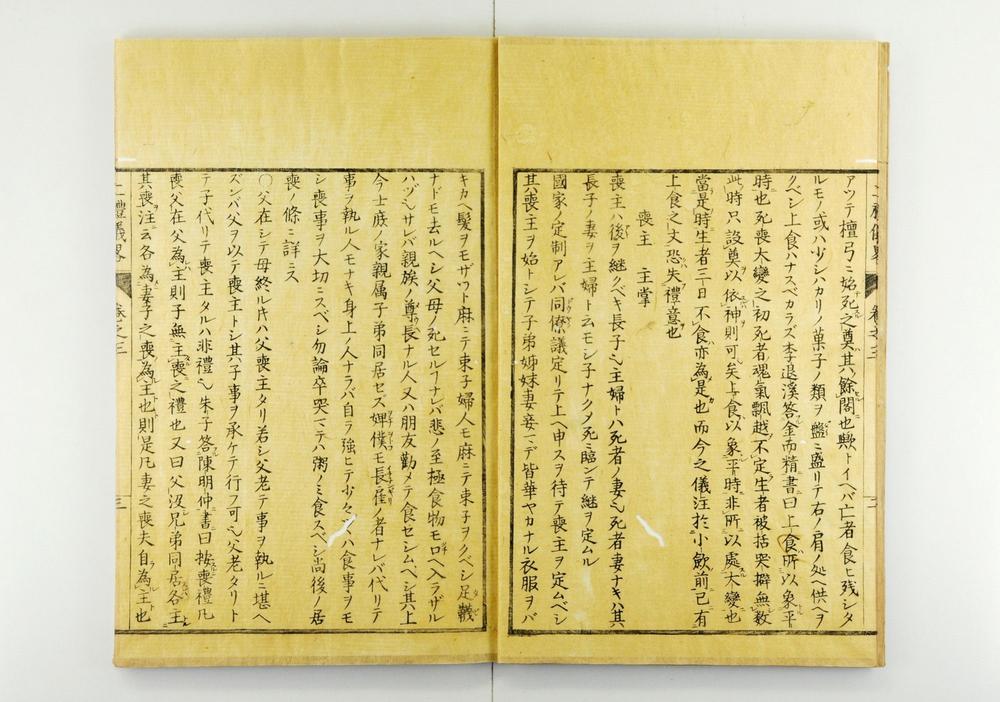 アツテ檀弓ニ始死之奠其餘閣也歟トイヘバ亡者食ヒ残シタ
ルモノ或ハ少シハカリノ菓子ノ類ヲ盤ニ盛リテ右ノ肩ノ処ヘ供ヘヲ
クベシ上食ハナスベカラズ李退溪答金而精書曰上食所以象平
時也死喪大變之初死者魂氣飄越不定生者被括哭擗無数
此時只設奠以依神則可矣上食以象平時非所以處大變也
當是時生者三日不食亦為是也而今之儀注於小歛前已有
上食之文恐失禮意也
喪主 主掌
喪主ハ後ヲ継クベキ長子也主婦トハ死者ノ妻也死者妻ナキハ其
長子ノ妻ヲ主婦ト云モシ子ナクメ死ニ臨ンテ継ヲ定ムル
國家ノ定制アレバ同僚議定リテ上ヘ申スヲ待テ喪主ヲ定ムベシ
其喪主ヲ始トシテ子弟姊妹妻妾マデ皆華ヤカナル衣服ヲバ
キカヘ髪ヲモザツト麻ニテ束子婦人モ麻ニテ束子ヲクベシ足韈
ナドモ去ルヘシ父母ノ死セルナレバ悲ノ至極食物モロヘ入ラザル
ハヅ也サレバ親族ノ尊長ナル人又ハ朋友勸メテ食セシムベシ其上
今士庶ノ家親属子弟同居セズ婢僕モ長雇ノ者ナレバ代リテ
事ヲ執ル人モナキ身上ノ人ナラバ自ラ強ヒテ少々ツヽハ食事ヲモ
シ喪事ヲ大切ニスベシ勿論卒哭マテハ粥ノミ食スベシ尚後ノ居
喪ノ條ニ詳ニス
〇父在シテ母終ル片ハ父喪主タリ若シ父老テ事ヲ執ルニ堪ヘ
ズンバ父ヲ以テ喪主トシ其子事ヲ承ケテ行フ可也父老タリト
テ子代リテ喪主タルハ非禮也朱子答陳明仲書曰按喪禮凡
喪父在父為主則子無主喪之禮也又曰父没兄弟同居各主
其喪注云各為妻子之喪為主也則是凡妻之喪夫自為主也
二禮儀畧 卷之三 三